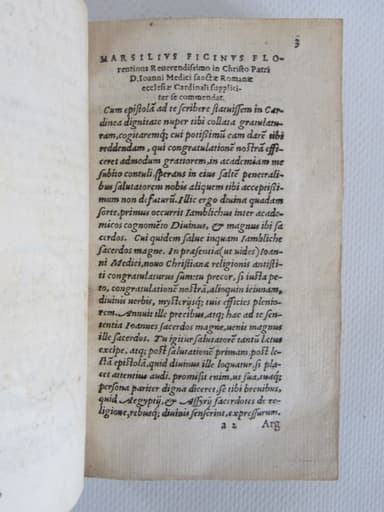 3
MARSILIVS FICINVS FLO-
rentinus Reuerendissimo in Christo Patri
D. Ioanni Medici sanctæ Romanæ
ecclesiæ Cardinali supplici-
ter se commendat.
Cum epistolā ad te scribere statuissem in Car
dinea dignitate nuper tibi collata gratulatu-
ram, cogitaremq; cui potissimū eam darē tibi
reddendam, qui congratulationē nostrā effi-
ceret admodum gratiorem, in academiam me
subito contuli, sperans in eius saltē penetrali-
bus salutatorem nobis aliquem tibi acceptissi-
mum non defuturū. Illic ergo diuina quadam
sorte, primus occurrit Iamblichus inter acade-
micos cognomēto Diuinus, & magnus ibi sa
cerdos. Cui quidem salue inquam Iambliche
sacerdos magne. In præsentia (ut uides) Ioan
ni Medici, nouo Christianæ religionis antisti-
ti congratulaturus sumeto precor, si iusta pe-
to, congratulationē nostrā, alioquin ieiunam,
diuinis uerbis, mysterijsq; tuis efficies plenio-
rem. Annuit ille precibus, atq; hac ad te sen-
tentia Ioannes sacerdos magne, uenit magnus
ille sacerdos. Tu igitur salutatorē tantū lætus
excipe, atq; post salutationē primam, post le-
ctā epistolā, quid diuinus ille loquatur, si pla-
cet attentius audi. promisit enim, ut sua, tuaq;
persona pariter digna diceret, se tibi breuibus,
quid Aegyptij, & Assyrij sacerdotes de re-
ligione, rebusq; diuinis senserint, expressurum.
a 2 Arg